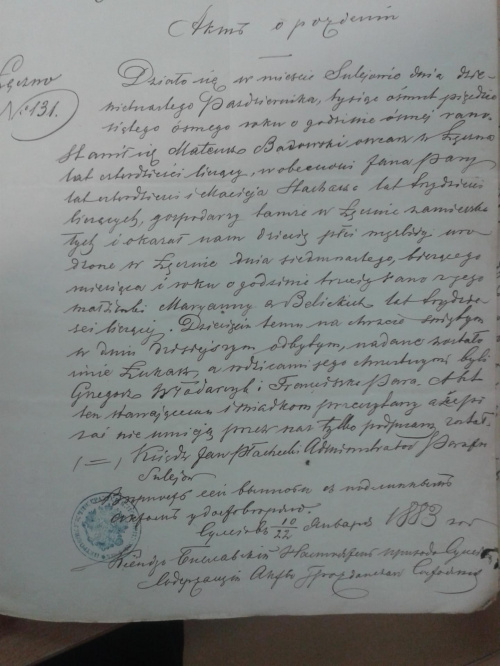 Актъ o рождении
Łęczno
№ 131.
Działo się w mieście Sulejowie dnia dzie-
więtnastego Października, tysiąc ośmset pięćdzie-
siątego ósmego roku o godzinie ósmej rano.
Stawił się Mateusz Badowski owczarz z Łęczna
lat czterdzieści liczący, w obecności Jana Pary
lat czterdzieści i Macieja Stachacza lat trzydzieści
liczących, gospodarzy tamże w Łęcznie zamieszka-
łych i okazał nam dziecię płci męskiej uro-
dzone w Łęcznie dnia siedmnastego, bieżącego
miesiąca i roku o godzinie trzeciej rano z jego
małżonki Maryanny z Belickich lat trzydzie-
ści liczącej. Dziecięciu temu na chrzcie świętym
w dniu dzisiejszym odbytym, nadane zostało
imie Łukasz, a rodzicami jego chrzestnymi byli
Grzegorz Włodarczyk i Franciszka Para. Akt
ten stawającemu i świadkom przeczytany a że pi-
sać nie umieją przez nas tylko podpisany został.
(—) Ksiądz Jan Płachecki Administrator Parafii
Sulejów
Вѣрность сей выписи съ подлиннымъ
актомъ удостовѣряю.
Сулеiовъ 10/22 Января 1883 года
Ксендзъ Настоятель прихода Сулеiовъ
Содержащiй Акты Гражданскаго Состоянiя